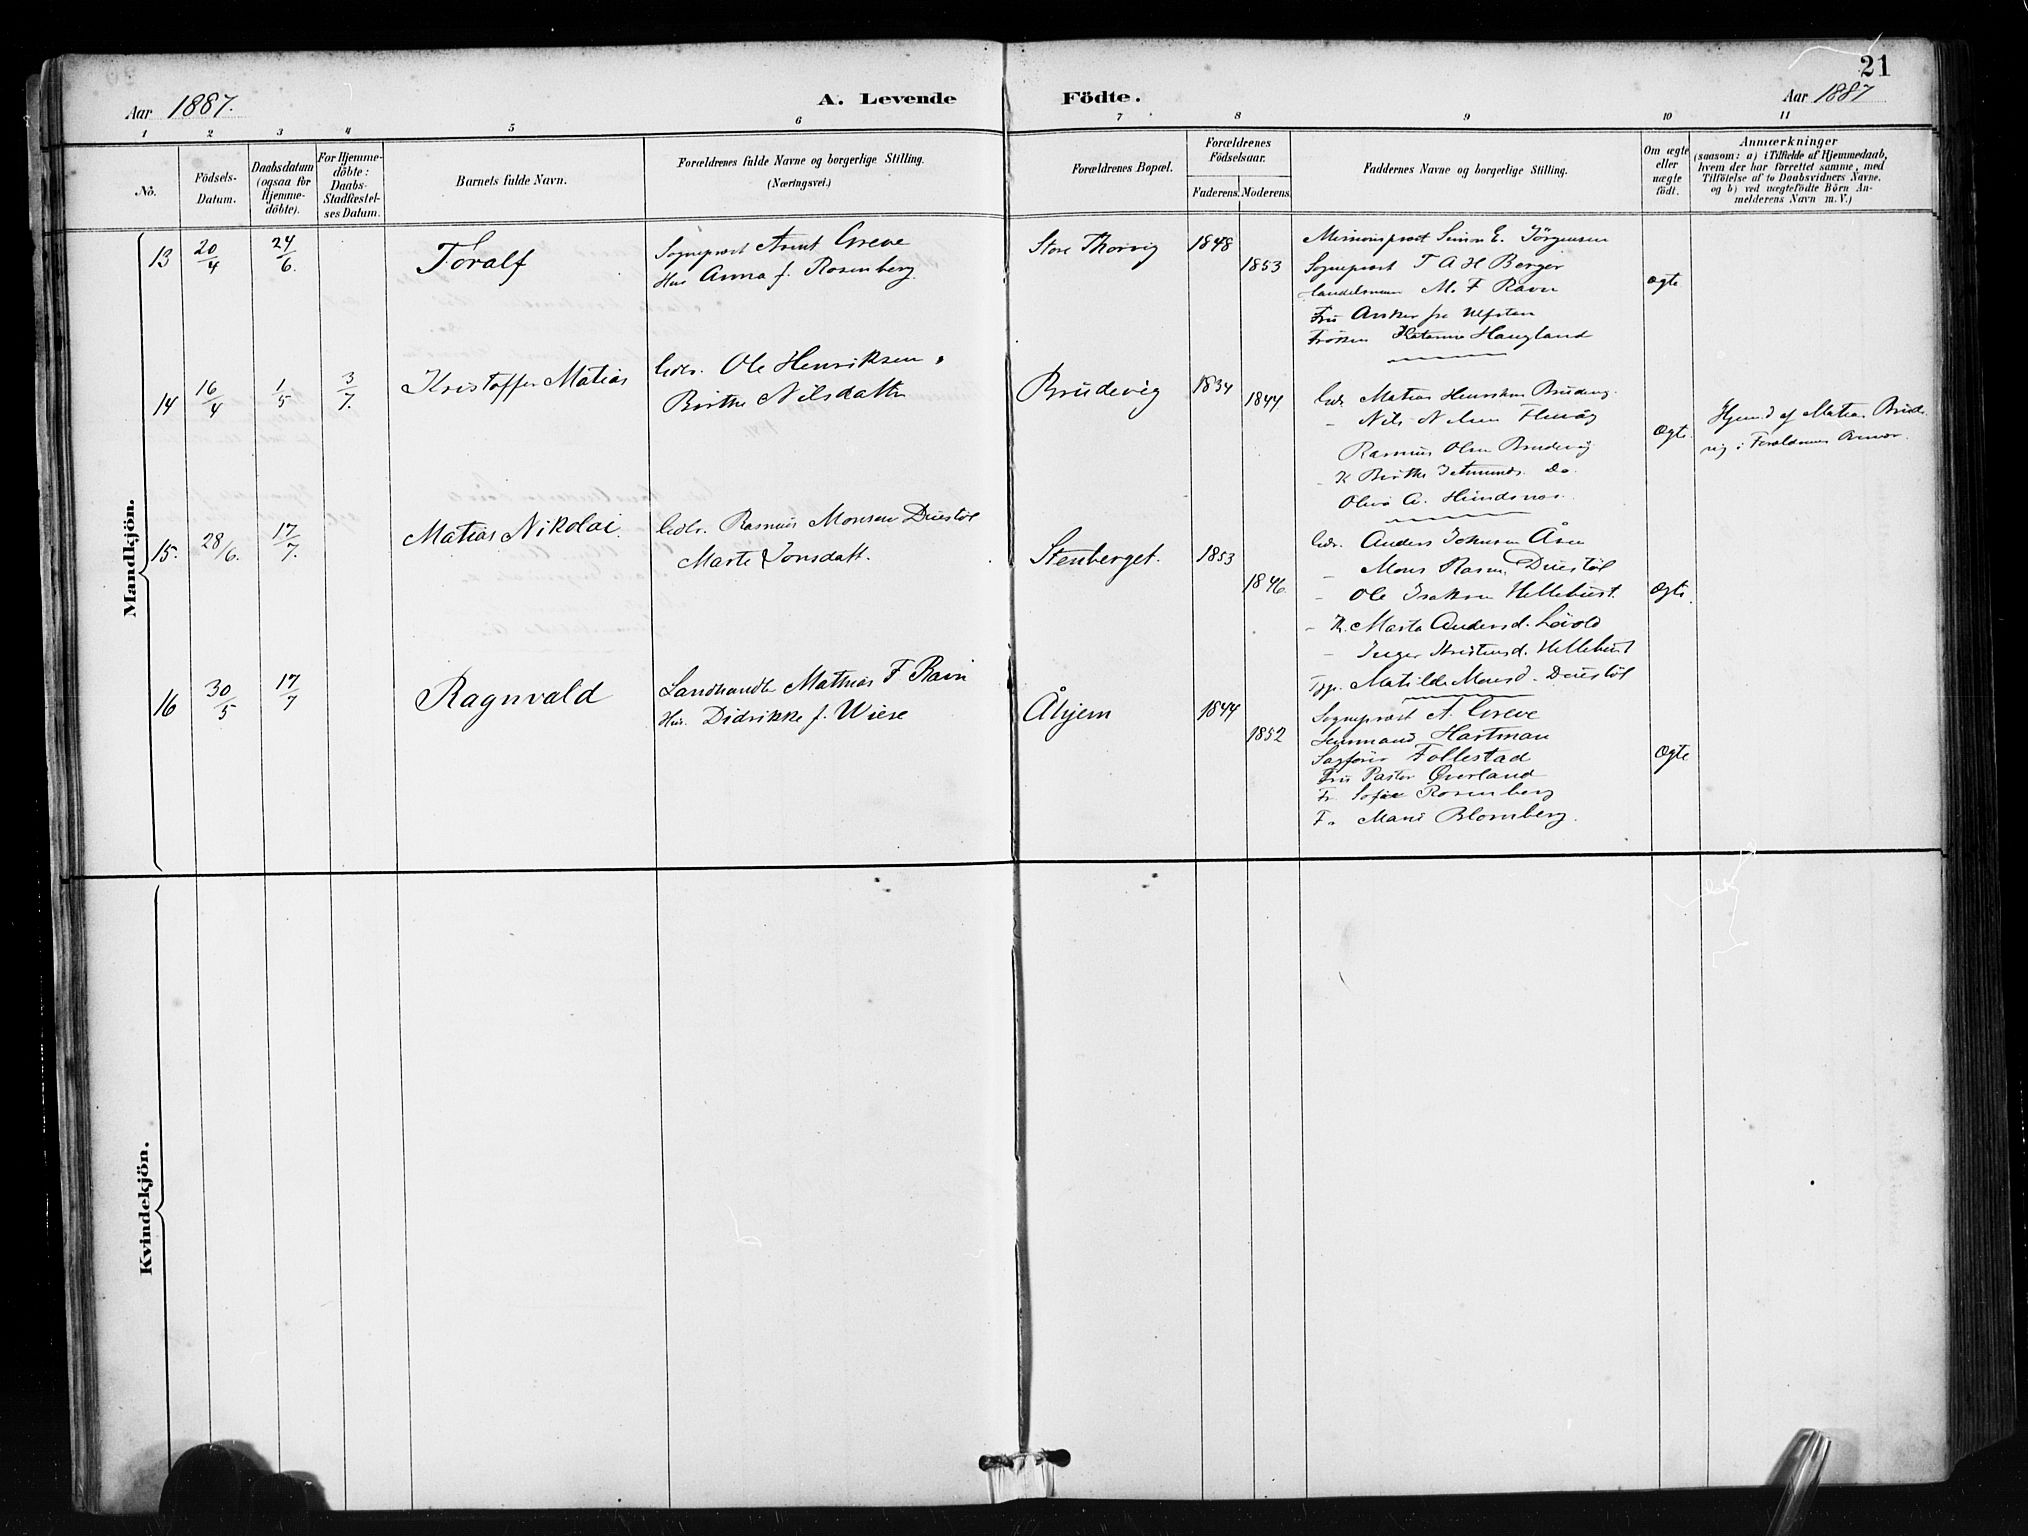 21
Aar 1887. A. Levende Födte. Aar 1887
1 2 3 4 5 6 7 8 9 10 11
No.
Födsels-
Datum.
Daabsdatum
(ogsaa for
Hjemme-
döbte).
For Hjemme-
döbte:
Daabs-
Stadfæstel-
ses Datum.
Barnets fulde Navn.
Forældrenes fulde Navne og borgerlige Stilling.
(Næringsvei.)
Forældrenes Bopæl.
Forældrenes
Födselsaar.
Faderens. Moderens.
Faddernes Navne og borgerlige Stilling.
Om ægte
eller
uægte
födt.
Anmærkninger
(saasom: a) i Tilfælde af Hjemmedaab,
hvem der har forrettet samme, med
Tilföielse af to Daabsvidners Navne,
og b) ved uægtefödte Börn An-
melderens Navn m. V.)
Mandkjön.
13 20/4 24/6. Toralf
Sogneprest Arent Greve
Hus Anna f. Rosenberg.
Store Thorvig 1848 1853
Missionsprest Simon E. Jörgensen
Sogneprest T A H Berger
Handelsmann M. F Ravn
Fru Anker fra Ulfsten
Fröken Katarina Haugland
ægte
14 16/4 1/5 3/7. Kristoffer Matias
Gdbr. Ole Henriksen
Birthe Nilsdatter
Brudevig 1834 1844
Gdr. Matias Henriksen Brudevig.
- Nils Nilsen
Rasmus Olsen Brudevig
- K Birthe Do.
Oliva A. Hundsnes.
Ægte.
Hjemd. af Matias Brude-
vig i Forældrenes Nærvær.
15. 28/6. 17/7. Matias Nikolai.
Gdbr. Rasmus Monsen Duestöl
Marte Jonsdatt.
Stenberget. 1853 1846.
Gdr. Anders Johnsen Åsen
- Mons Rasm. Duestöl
- Ole Isaksen Hellebust.
- K. Marta Andersd. Lövold
- Inger Kristensd. Hellebust
Pge. Matilde Monsd. Duestöl
Ægte.
16 30/5 17/7 Ragnvald
Landhandler Mathias F Ravn
Hus. Didrikke f. Wiese
Åhjem 1844 1852
Sogneprest A. Greve
Lensmand Hartman
Sagförer Follestad
Fru Pastor Överland
Fr. Sofie Rosenberg
Fr. Marie Blomberg.
Ægte
Kvindekjön.